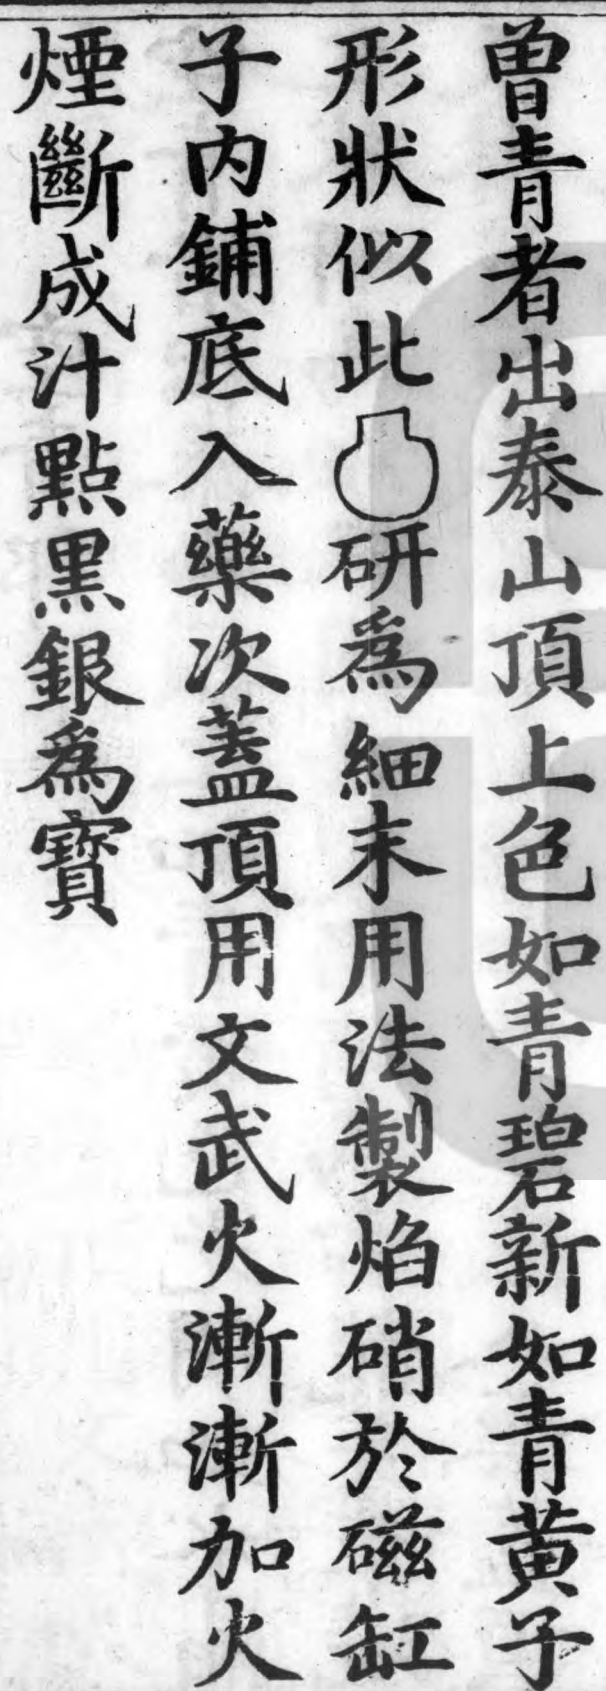 曾青者出泰山頂上色如青碧新如青黄子
形狀似此研爲細末用法製焰硝於磁缸
子内鋪底入藥次蓋頂用文武火漸漸加火
煙斷成汁點黒銀爲寶